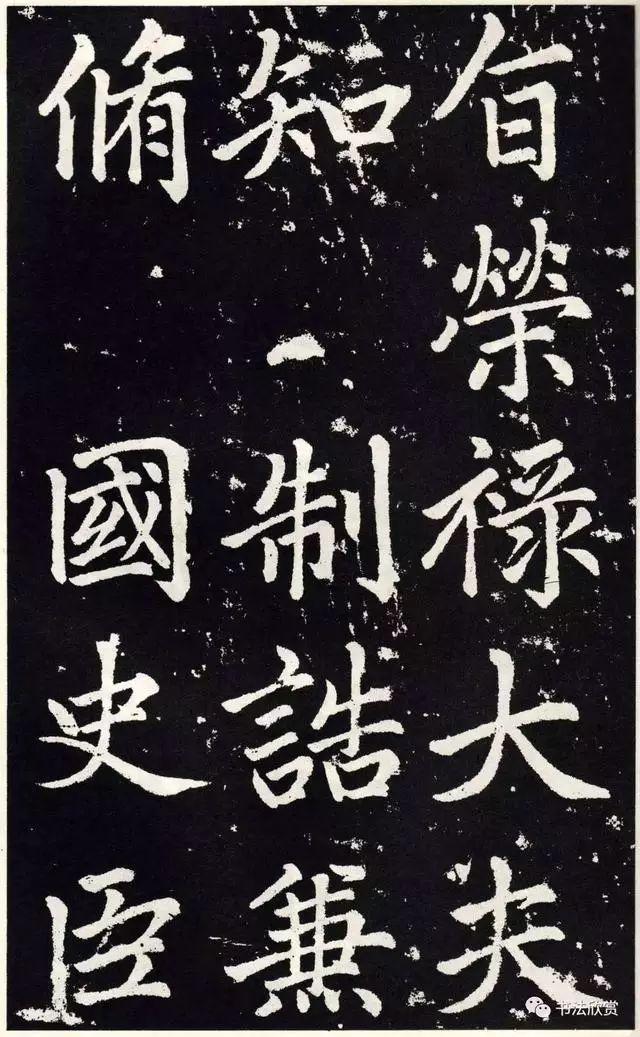 旨榮祿大夫
知制誥兼
脩國史臣
书法欣赏